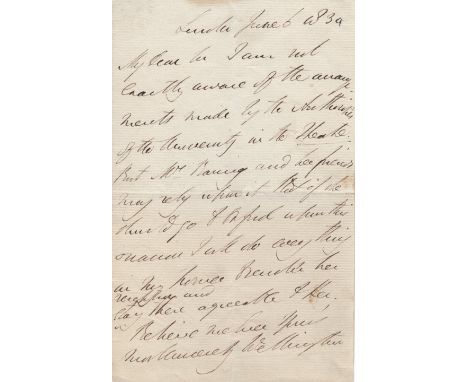 London June 6 1834
My dear Sir I am not
exactly aware of the arrange-
ments made by the Authorities
of the University in the Theatre.
But Mrs and her friends
may rely upon it that if she
should go to Oxford upon this
occasion I will do everything
in my power to render her
and
stay there agreeable to Her.
Believe me Ever Yours
most sincerely Wellington